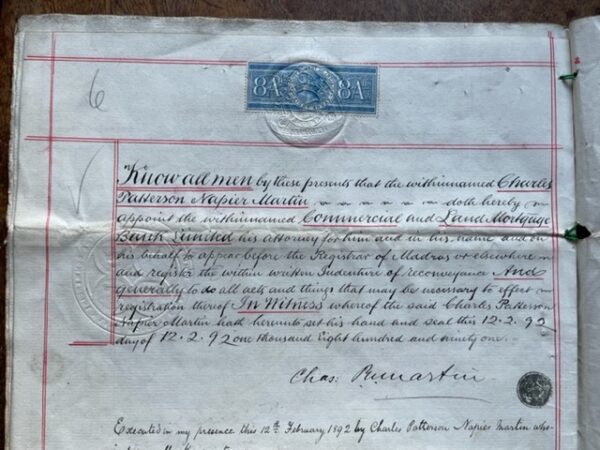 6
8A 8A
Know all men by these presents that the withinnamed Charles
Patterson Napier Martin doth hereby
appoint the withinnamed Commercial and Land Mortgage
Bank Limited his attorney for him and in his name and on
his behalf to appear before the Registrar of Madras or elsewhere
and register the within written Indenture of reconveyance And
generally to do all acts and things that may be necessary to effect
registration thereof In Witness whereof the said Charles Patterson
Napier Martin hath hereunto set his hand and seal this 12.2.92
day of 12.2.92 one thousand Eight hundred and ninety one
Chas: P. N. Martin
Executed in my presence this 12th February 1892 by Charles Patterson Napier Martin who